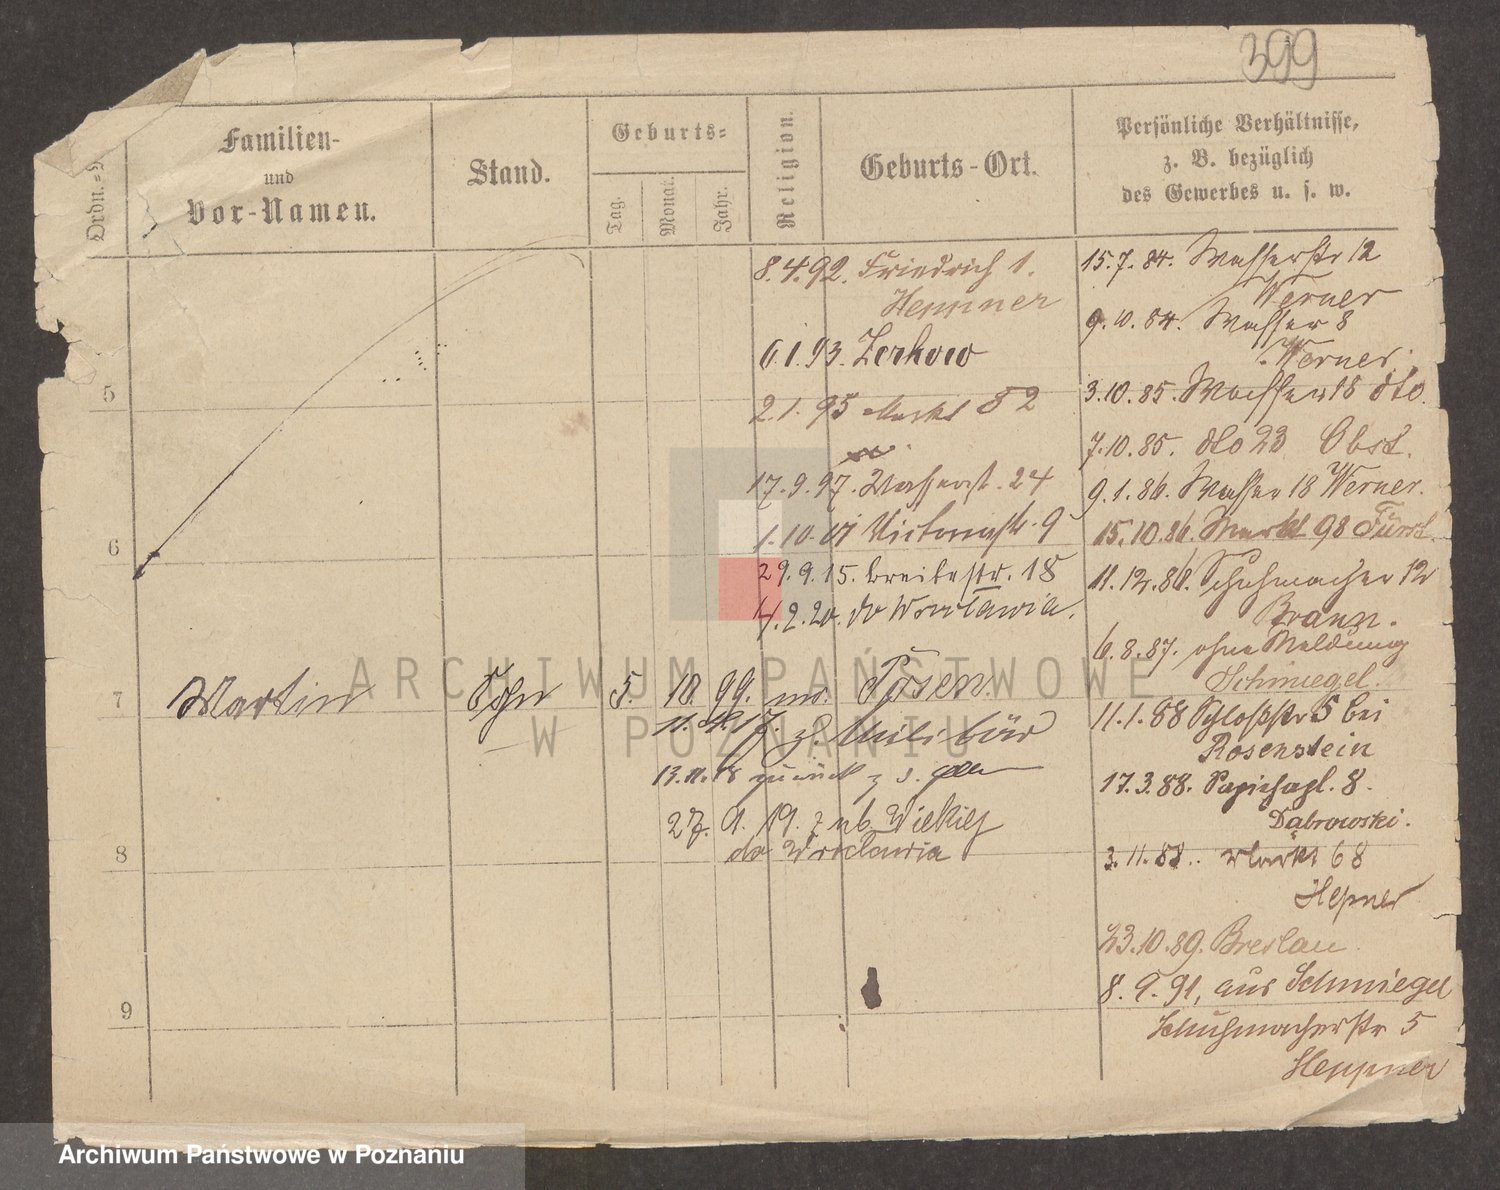 399
Ordn.-
Familien-
und
Vor-Namen.
Stand.
Geburts-
Tag.
Monat.
Jahr.
Religion.
Geburts-Ort.
Persönliche Verhältnisse,
z. B. bezüglich
des Gewerbes u. s. w.
8.4.92. Friedrich 1.
Heppner
6.1.93. Zerkow
2.1.95 Markt 82
17.9.97. Wasserst. 24
1.10.01 Victoriastr. 9
29.9.15. Breitestr. 18
4.2.20. do Wrocławia.
5
6
7
Martin
Sohn
5. 10. 99. mos. Posen.
17. z. Militär
13.11.18 zurück z.
27. 9. 19. z ub. Wielkiej
do Wrocławia
8
9
15.7.84. Wasserstr 12
Werner
9.10.84. Wasser 8
Werner.
3.10.85. Wasser 18 dto.
7.10.85. dto 23 Obst.
9.1.86. Wasser 18 Werner.
15.10.86. Markt 98 Fürst.
11.12.86. Schuhmacher 12
Braun.
6.8.87. ohne Meldung
Schmiegel.
11.1.88 Schloßstr 5 bei
Rosenstein
17.3.88. 8.
Dąbrowski.
3.11.88. Markt 68
Hepner
23.10.89. Breslau
8.9.91, aus Schmiegel
Schuhmacherstr 5
Heppner
ARCHIWUM PAŃSTWOWE
W POZNANIU
Archiwum Państwowe w Poznaniu